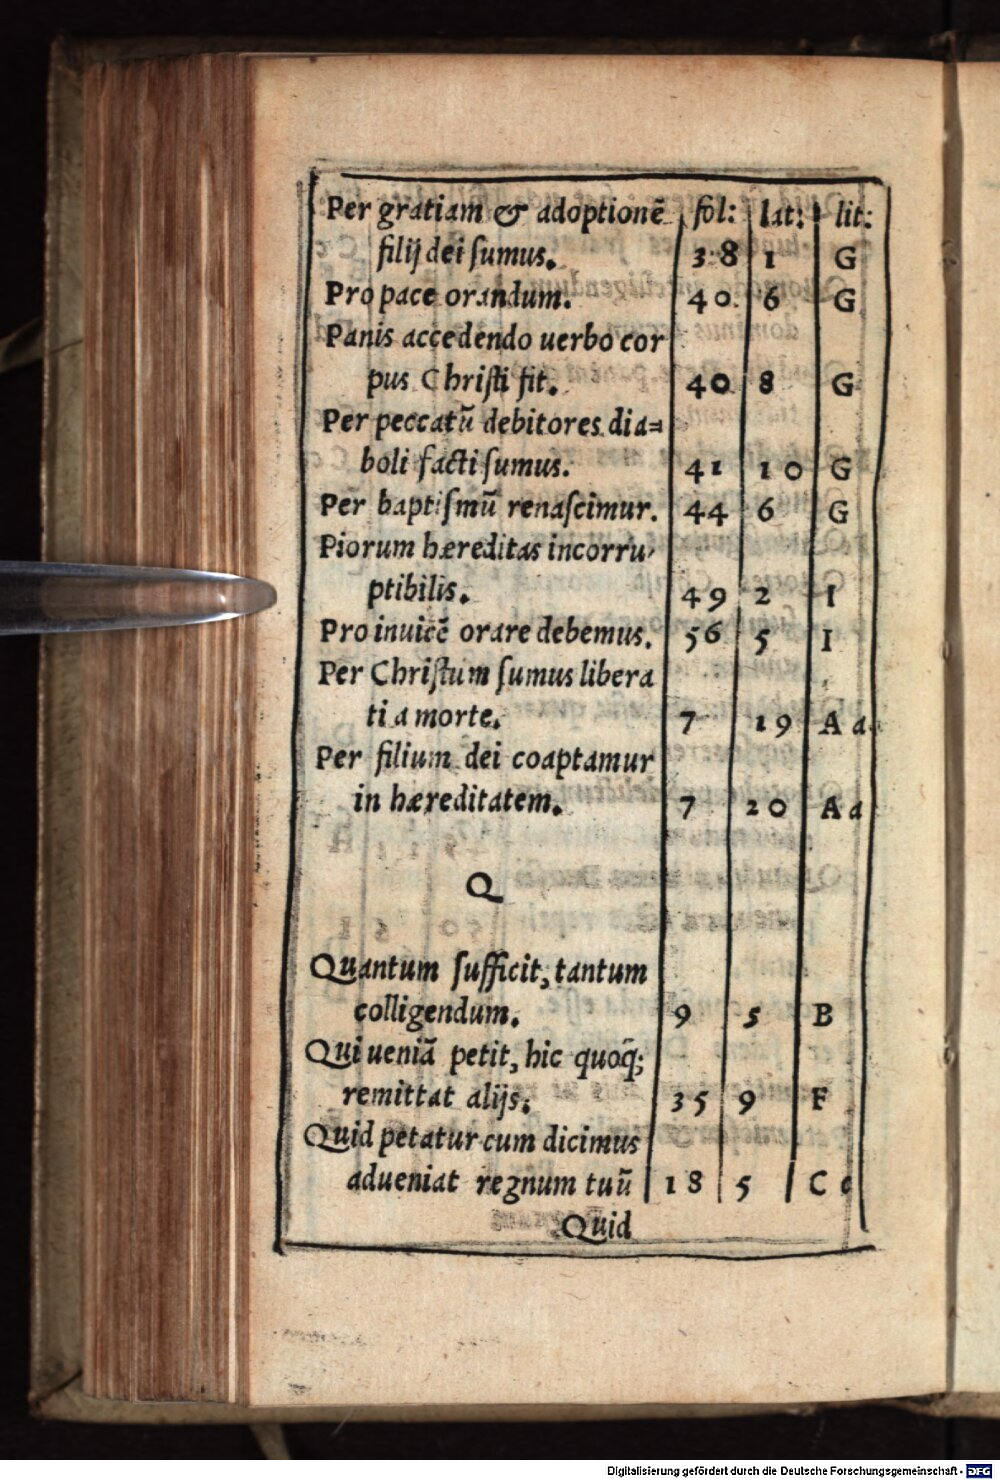 Per gratiam & adoptionē fol: lat: lit:
filij dei ſumus. 38 1 G
Pro pace orandum. 40 6 G
Panis accedendo uerbo cor
pus Chriſti fit. 40 8 G
Per peccatū debitores dia=
boli facti ſumus. 41 10 G
Per baptiſmū renaſcimur. 44 6 G
Piorum hæreditas incorru-
ptibilis. 49 2 I
Pro inuicē orare debemus. 56 5 I
Per Chriſtum ſumus libera
ti a morte. 7 19 A a
Per filium dei coaptamur
in hæreditatem. 7 20 A a
Q
Quantum ſufficit, tantum
colligendum. 9 5 B
Qui ueniā petit, hic quoq̃;
remittat alijs. 35 9 F
Quid petatur cum dicimus
adueniat regnum tuū 18 5 C c
Quid
Digitalisierung gefördert durch die Deutsche Forschungsgemeinschaft - DFG